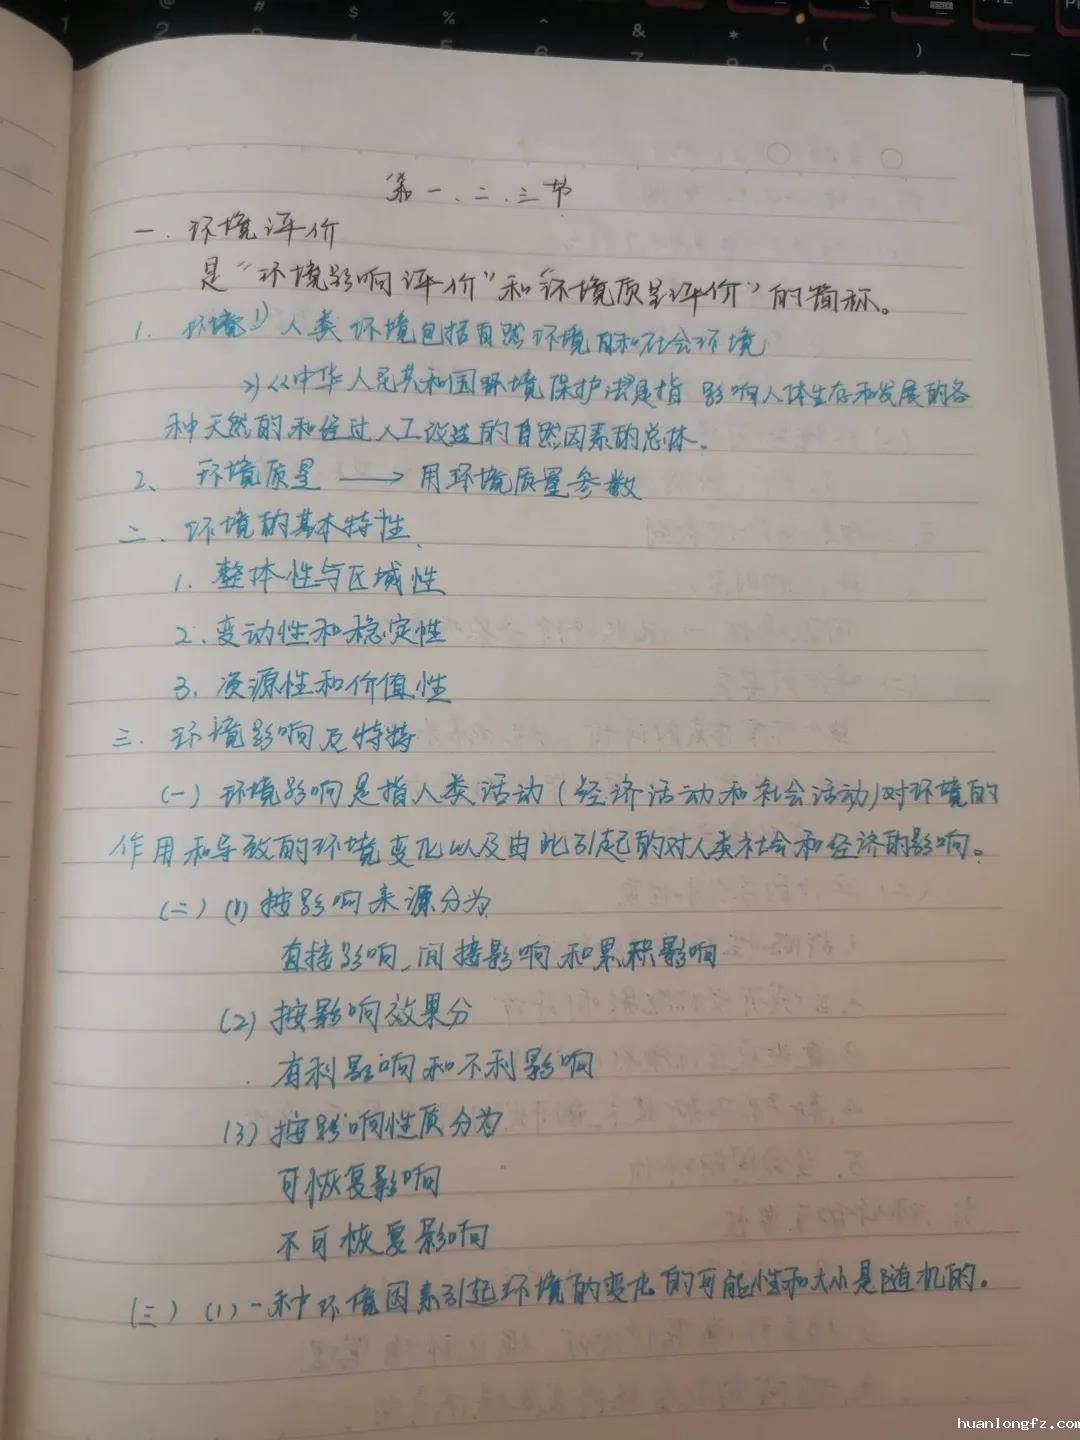 第一、二、三节
一. 环境评价
是“环境影响评价”和“环境质量评价”的简称。
1. 环境 1) 人类环境包括自然环境和社会环境
2) 《中华人民共和国环境保护法》是指 影响人体生存和发展的各
种天然的和经过人工改造的自然因素的总体.
2、 环境质量 → 用环境质量参数
二. 环境的基本特性
1. 整体性与区域性
2. 变动性和稳定性
3. 资源性和价值性
三. 环境影响及特特
(一) 环境影响是指人类活动(经济活动和社会活动)对环境的
作用和导致的环境变化以及由此引起的对人类社会和经济的影响。
(二) (1) 按影响来源分为
直接影响、间接影响和累积影响
(2) 按影响效果分
有利影响和不利影响
(3) 按影响性质分为
可恢复影响
不可恢复影响
(三) (1) 一种环境因素引起环境的变化的可能性和大小是随机的。
huanlongfz.com